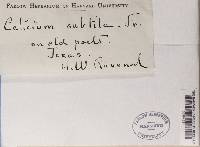 FARLOW HERBARIUM OF HARVARD UNIVERSITY
Calicium subtile. Fr.
on old posts.
Texas.
H. W. Ravenel
FARLOW HERBARIUM
HARVARD
UNIVERSITY